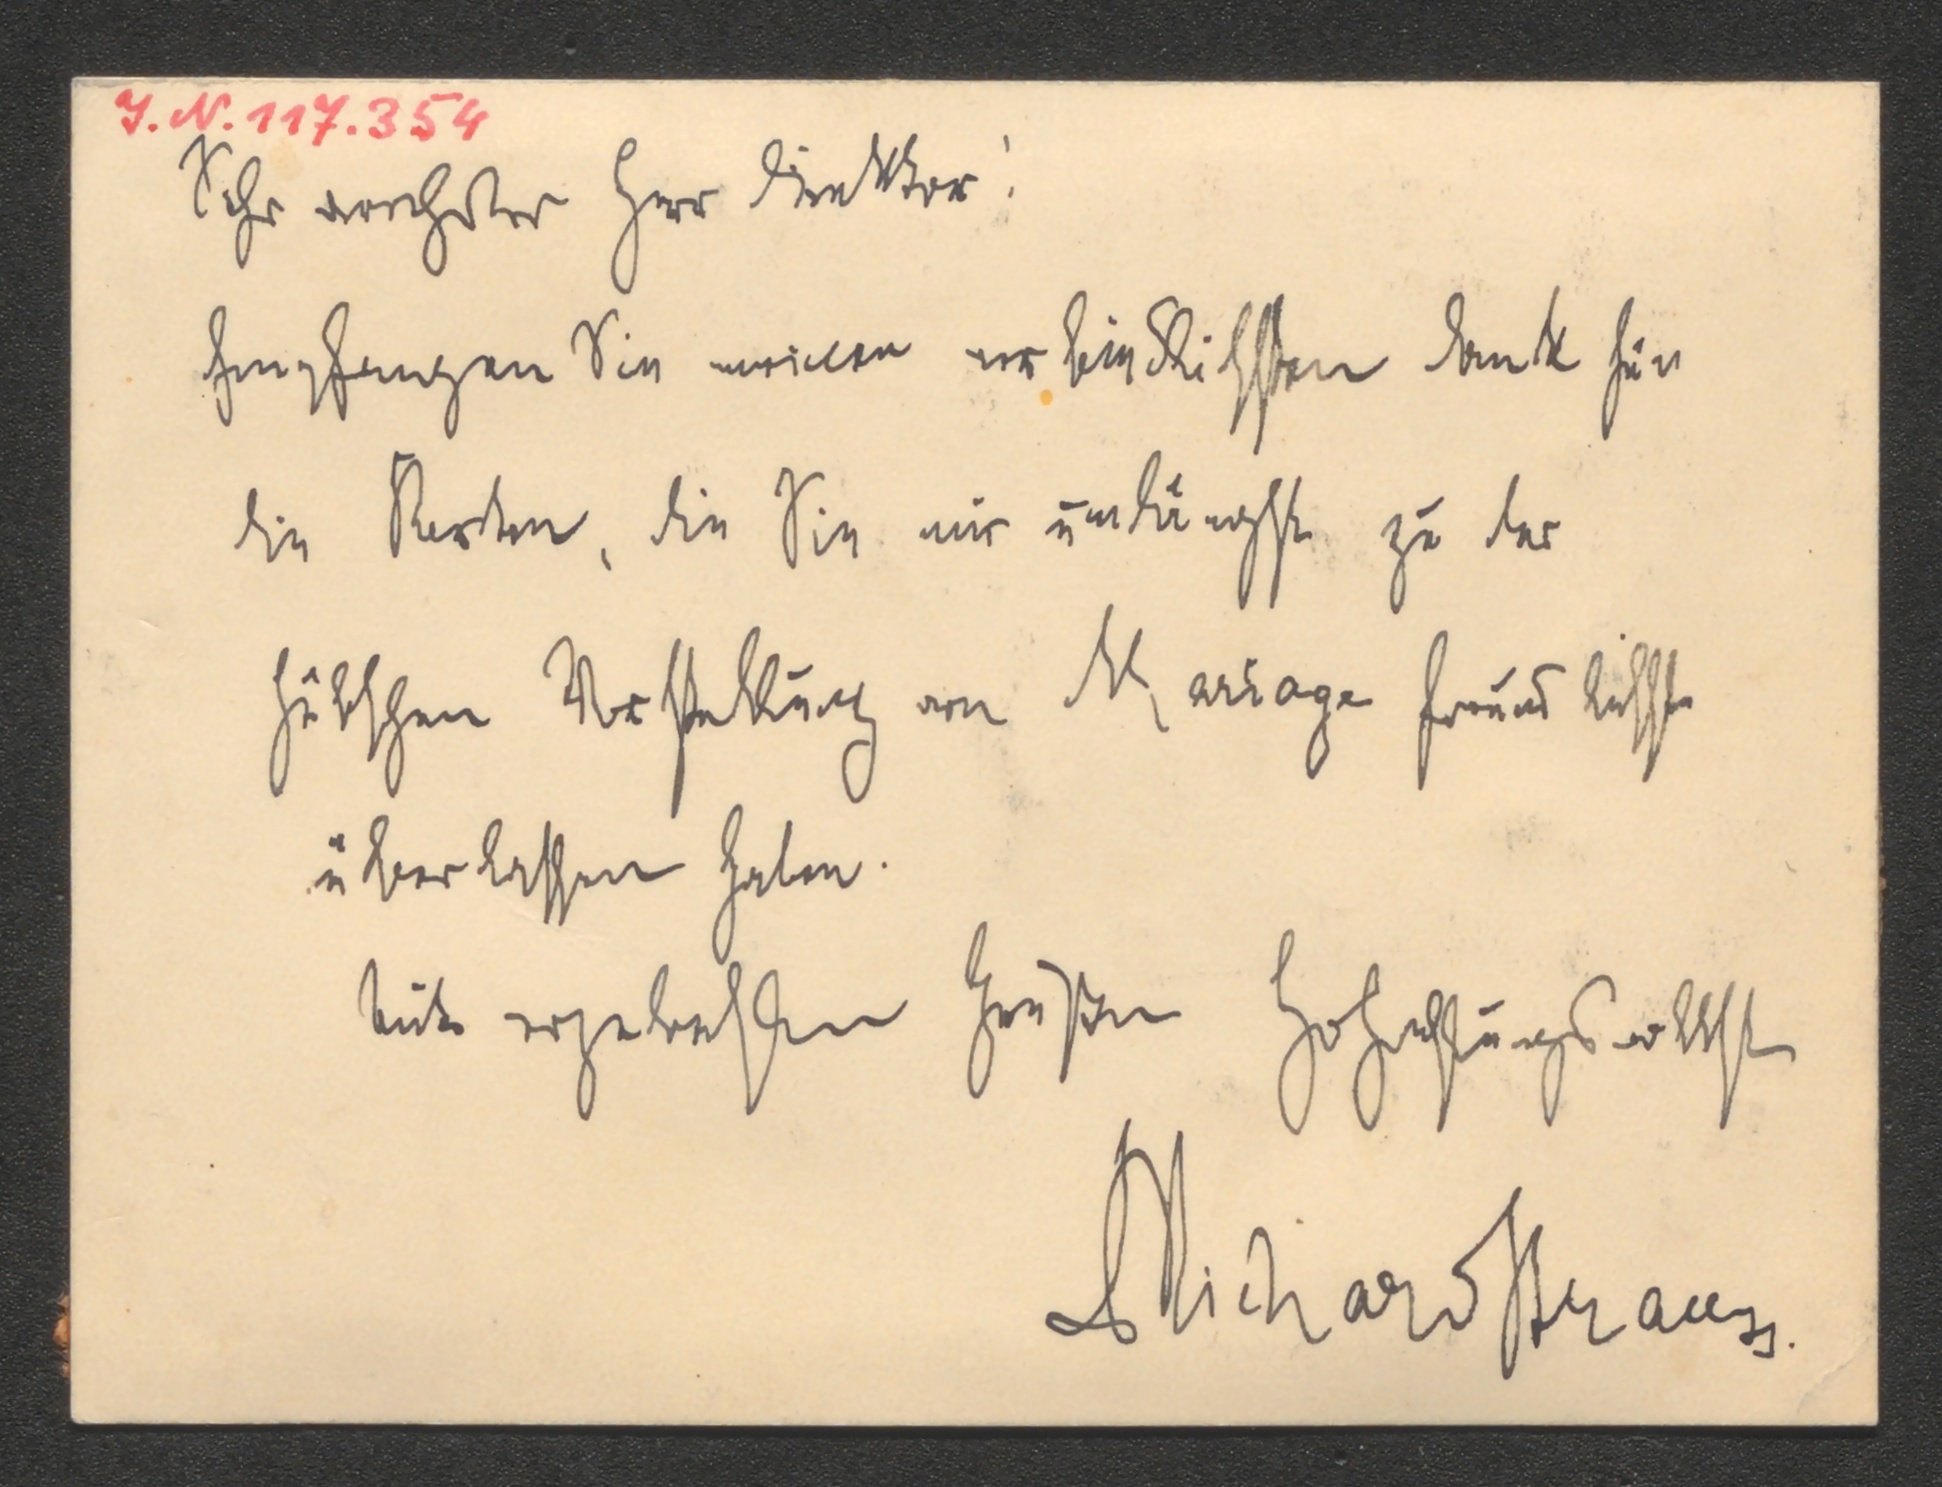 J.N. 117.354
Sehr verehrter Herr Direktor!
Empfangen Sie meinen verbindlichsten Dank für
die Karten, die Sie mir unlängst zu der
hübschen Vorstellung von Mariage freundlichst
überlassen haben.
Mit ergebensten Grüßen Hochachtungsvollst
Richard Strauss.